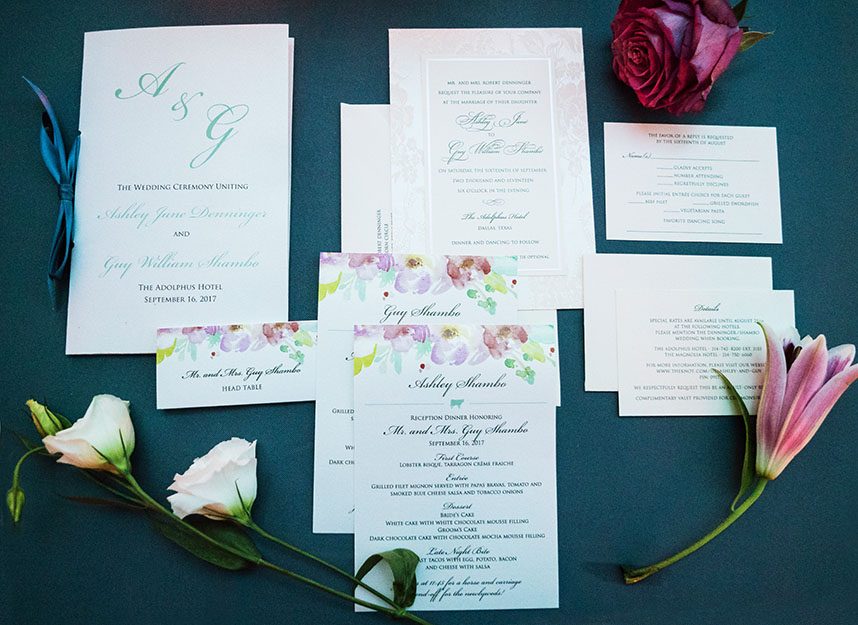 A
&
G
THE WEDDING CEREMONY UNITING
Ashley Jane Denninger
AND
Guy William Shambo
THE ADOLPHUS HOTEL
SEPTEMBER 16, 2017
MR. AND MRS. ROBERT DENNINGER
REQUEST THE PLEASURE OF YOUR COMPANY
AT THE MARRIAGE OF THEIR DAUGHTER
Ashley Jane
TO
Guy William Shambo
ON SATURDAY, THE SIXTEENTH OF SEPTEMBER
TWO THOUSAND AND SEVENTEEN
SIX O'CLOCK IN THE EVENING
The Adolphus Hotel
DALLAS, TEXAS
DINNER AND DANCING TO FOLLOW
TIE OPTIONAL
ROBERT DENNINGER
CIRCLE
THE FAVOR OF A REPLY IS REQUESTED
BY THE SIXTEENTH OF AUGUST
Name(s)
GLADLY ACCEPTS
NUMBER ATTENDING
REGRETFULLY DECLINES
PLEASE INITIAL ENTRÉE CHOICE FOR EACH GUEST
BEEF FILET GRILLED SWORDFISH
VEGETARIAN PASTA
FAVORITE DANCING SONG
Details
SPECIAL RATES ARE AVAILABLE UNTIL AUGUST
AT THE FOLLOWING HOTELS.
PLEASE MENTION THE DENNINGER/SHAMBO
WEDDING WHEN BOOKING.
THE ADOLPHUS HOTEL - 214-742-8200
THE MAGNOLIA HOTEL - 214-750-6060
FOR MORE INFORMATION, PLEASE VISIT OUR WEBSITE
WE RESPECTFULLY REQUEST THIS BE AN ADULT
COMPLIMENTARY VALET PROVIDED FOR
Mr. and Mrs. Guy Shambo
HEAD TABLE
Guy Shambo
GRILLED
SM
DARK CH
Ashley Shambo
RECEPTION DINNER HONORING
Mr. and Mrs. Guy Shambo
SEPTEMBER 16, 2017
First Course
LOBSTER BISQUE, TARRAGON CRÈME FRAICHE
Entrée
GRILLED FILET MIGNON SERVED WITH PAPAS BRAVAS, TOMATO AND
SMOKED BLUE CHEESE SALSA AND TOBACCO ONIONS
Dessert
BRIDE'S CAKE
WHITE CAKE WITH WHITE CHOCOLATE MOUSSE FILLING
GROOM'S CAKE
DARK CHOCOLATE CAKE WITH CHOCOLATE MOCHA MOUSSE FILLING
Late Night Bite
TACOS WITH EGG, POTATO, BACON
AND CHEESE WITH SALSA
at 11:45 for a horse and carriage
for the newlyweds!